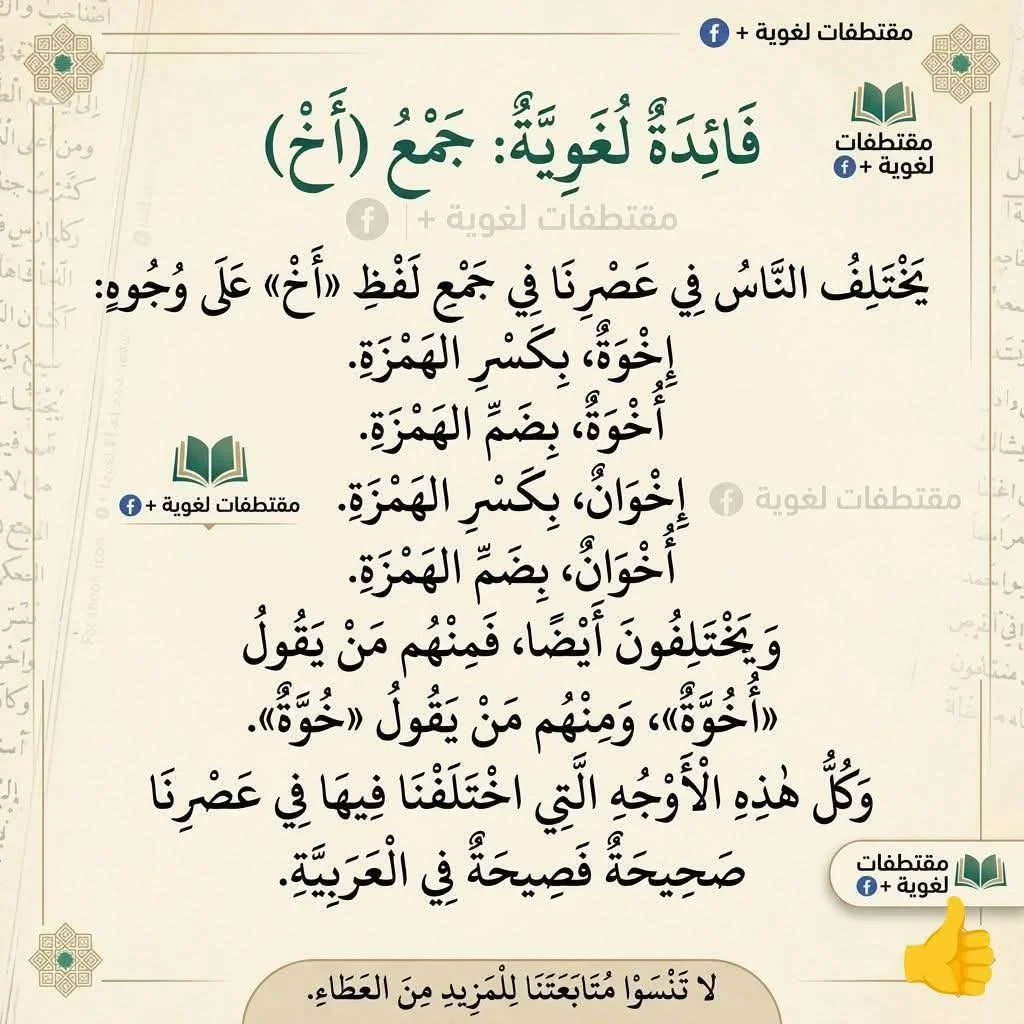 مقتطفات لغوية +
مقتطفات
لغوية +
فَائِدَةٌ لُغَوِيَّةٌ: جَمْعُ (أَخْ)
مقتطفات لغوية +
يَخْتَلِفُ النَّاسُ فِي عَصْرِنَا فِي جَمْعِ لَفْظِ «أَخْ» عَلَى وُجُوهٍ:
إِخْوَةٌ، بِكَسْرِ الهَمْزَةِ.
أُخْوَةٌ، بِضَمِّ الهَمْزَةِ.
إِخْوَانٌ، بِكَسْرِ الهَمْزَةِ.
مقتطفات لغوية +
مقتطفات لغوية +
أُخْوَانٌ، بِضَمِّ الهَمْزَةِ.
وَيَخْتَلِفُونَ أَيْضًا، فَمِنْهُم مَنْ يَقُولُ
«أُخُوَّةٌ»، وَمِنْهُم مَنْ يَقُولُ «خُوَّةٌ».
وَكُلُّ هٰذِهِ الْأَوْجُهِ الَّتِي اخْتَلَفْنَا فِيهَا فِي عَصْرِنَا
صَحِيحَةٌ فَصِيحَةٌ فِي الْعَرَبِيَّةِ.
مقتطفات
لغوية +
لا تَنْسَوْا مُتَابَعَتَنَا لِلْمَزِيدِ مِنَ العَطَاءِ.